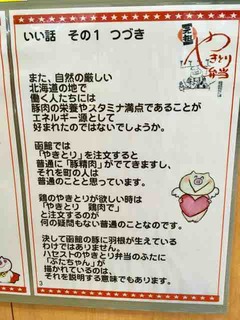 いい話 その１ つづき
元祖
やきとり弁当
また、自然の厳しい
北海道の地で
働く人たちには
豚肉の栄養やスタミナ満点であることが
エネルギー源として
好まれたのではないでしょうか。
函館では
「やきとり」を注文すると
普通に「豚精肉」がでてきますし、
それを町の人は
普通のことと思っています。
鶏のやきとりが欲しい時は
「やきとり 鶏肉で」
と注文するのが
何の疑問もない普通のことなのです。
決して函館の豚に羽根が生えている
わけではありません。
ハセストのやきとり弁当のふたに
「ぶたちゃん」が
描かれているのは、
それを説明する意味でもあります。
3